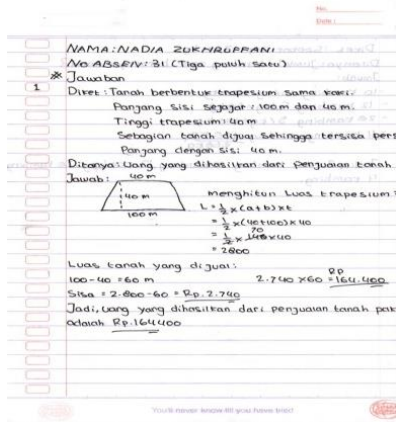 No.
Date:
NAMA: NADIA ZUKHRUFFANI
No ABSEN: 31 (Tiga puluh satu)
* Jawaban
1 Diket: Tanah berbentuk trapesium sama kaki.
Panjang sisi sejajar: 100 m dan 40 m.
Tinggi trapesium: 40 m
Sebagian tanah dijual sehingga tersisa pers
Panjang dengan sisi 40 m.
Ditanya: Uang yang dihasilkan dari penjualan tanah
Jawab:
40 m
40 m
100 m
menghitun Luas trapesium:
L = 1/2 × (a+b) × t
= 1/2 × (40+100) × 40
= 1/2 × 140 × 40
70
= 2800
Luas tanah yang dijual:
100 - 40 = 60 m
Sisa = 2.800 - 60 = Rp. 2.740
2.740 × 60 = Rp 164.400
Jadi, Uang yang dihasilkan dari penjualan tanah pak
adalah Rp. 164400
You'll never know till you have tried